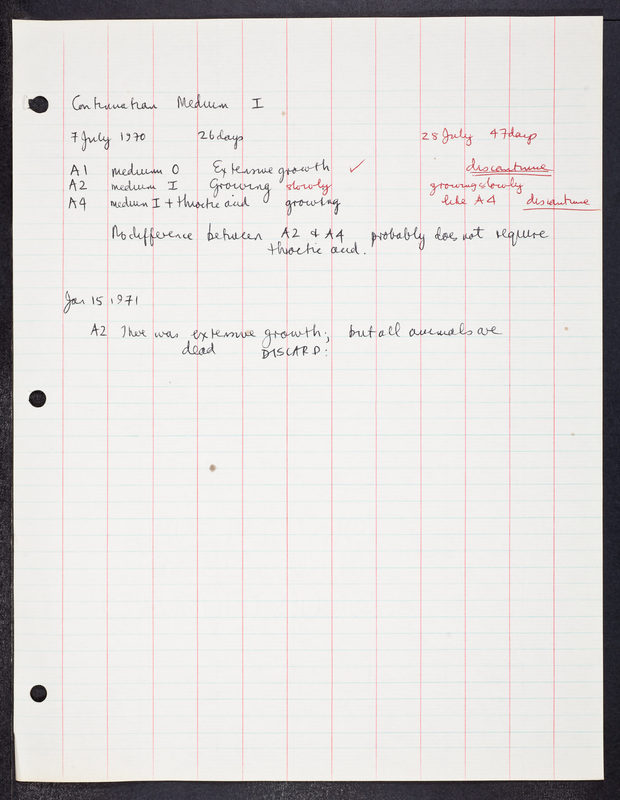 Continuation Medium I
7 July 1970 26 days 28 July 47 days
A1 medium O Extensive growth ✓ discontinue
A2 medium I Growing slowly growing slowly
A4 medium I + thioctic acid growing like A4 discontinue
No difference between A2 & A4 probably does not require
thioctic acid.
Jan 15 1971
A2 There was extensive growth; but all animals are
dead DISCARD: